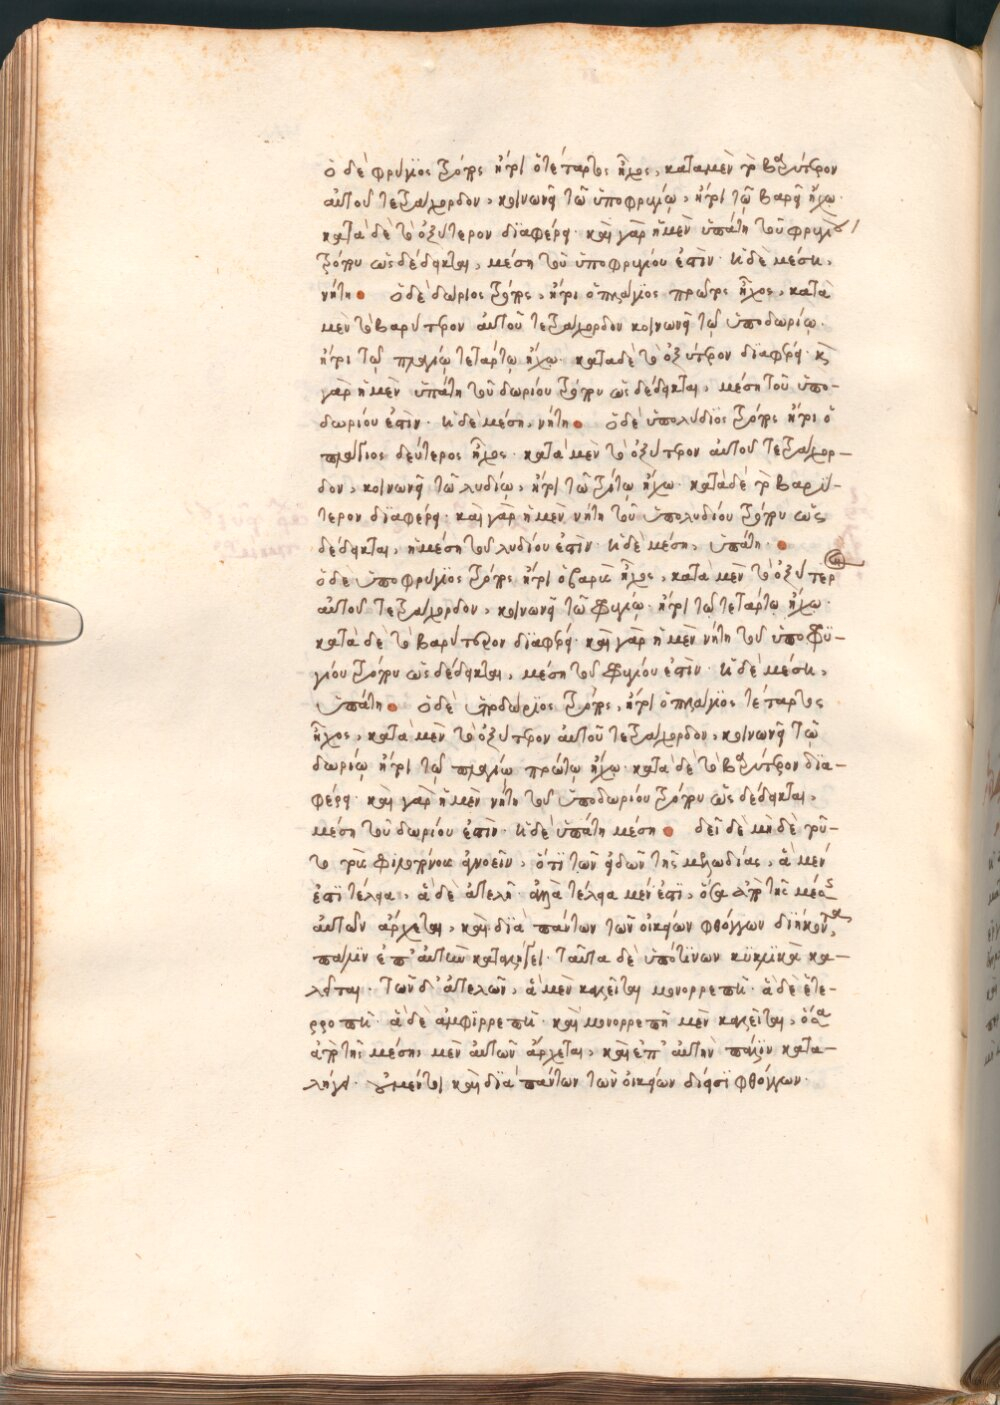 ὁ δὲ φρύγιος τρόπος ἤτοι ὁ τέταρτος ἦχος, κατὰ μὲν τὸ βαρύτερον
αὐτοῦ τετράχορδον, κοινωνεῖ τῶ ὑποφρυγίῳ, ἤτοι τῶ βαρεῖ ἤχω·
κατὰ δὲ τὸ ὀξύτερον διαφέρει· καὶ γὰρ ἡ μὲν ὑπάτη τοῦ φρυγίου
τρόπου ὡς δέδεικται, μέση τοῦ ὑποφρυγίου ἐστὶν· ἡ δὲ μέση,
νήτη· ὁ δὲ δώριος τρόπος, ἤτοι ὁ πλάγιος πρῶτος ἦχος, κατὰ
μὲν τὸ βαρύτερον αὐτοῦ τετράχορδον κοινωνεῖ τῶ ὑποδωρίω·
ἤτοι τῶ πλαγίω τετάρτω ἤχω· κατὰ δὲ τὸ ὀξύτερον διαφέρει· καὶ
γὰρ ἡ μὲν ὑπάτη τοῦ δωρίου τρόπου ὡς δέδεικται, μέση τοῦ ὑπο-
δωρίου ἐστὶν· ἡ δὲ μέση, νήτη· ὁ δὲ ὑπολύδιος τρόπος ἤτοι ὁ
πλάγιος δεύτερος ἦχος· κατὰ μὲν τὸ ὀξύτερον αὐτοῦ τετράχορ-
δον, κοινωνεῖ τῶ λυδίω, ἤτοι τῶ τρίτω ἤχω· κατὰ δὲ τὸ βαρύ-
τερον διαφέρει· καὶ γὰρ ἡ μὲν νήτη τοῦ ὑπολυδίου τρόπου ὡς
δέδεικται, ἡ μέση τοῦ λυδίου ἐστὶν· ἡ δὲ μέση, ὑπάτη·
ὁ δὲ ὑποφρύγιος τρόπος ἤτοι ὁ βαρὺς ἦχος, κατὰ μὲν τὸ ὀξύτερον
αὐτοῦ τετράχορδον, κοινωνεῖ τῶ φρυγίω· ἤτοι τῶ τετάρτω ἤχω·
κατὰ δὲ τὸ βαρύτερον διαφέρει· καὶ γὰρ ἡ μὲν νήτη τοῦ ὑποφρυ-
γίου τρόπου ὡς δέδεικται, μέση τοῦ φρυγίου ἐστὶν· ἡ δὲ μέση,
ὑπάτη· ὁ δὲ ὑποδώριος τρόπος, ἤτοι ὁ πλάγιος τέταρτος
ἦχος, κατὰ μὲν τὸ ὀξύτερον αὐτοῦ τετράχορδον, κοινωνεῖ τῶ
δωρίω ἤτοι τῶ πλαγίω πρώτω ἤχω· κατὰ δὲ τὸ βαρύτερον δια-
φέρει· καὶ γὰρ ἡ μὲν νήτη τοῦ ὑποδωρίου τρόπου ὡς δέδεικται,
μέση τοῦ δωρίου ἐστὶν· ἡ δὲ ὑπάτη μέση· δεῖ δὲ μὴ δὲ τοῦ-
το τοὺς ἀγνοεῖν, ὅτι τῶν εἰδῶν τῆς μελωδίας, ἃ μέν
ἐστι τέλεια, ἃ δὲ ἀτελῆ· ἀλλὰ τέλεια μέν ἐστι, ὅσα ἀπὸ τῆς μέσης
αὐτῶν ἄρχεται, καὶ διὰ πάντων τῶν οἰκείων φθόγγων διήκοντα,
πάλιν ἐπ' αὐτὴν καταλήγει· ταῦτα δὲ ὑπό τινων κυκλικὰ κα-
λεῖται· τῶν δ' ἀτελῶν, ἃ μὲν καλεῖται μονορρεπῆ· ἃ δὲ ἑτε-
ρορεπῆ· ἃ δὲ ἀμφιρρεπῆ· καὶ μονορρεπῆ μὲν καλεῖται, ὅσα
ἀπὸ τῆς μέσης μὲν αὐτῶν ἄρχεται, καὶ ἐπ' αὐτὴν πάλιν κατα-
λήγει· οὐ μέντοι καὶ διὰ πάντων τῶν οἰκείων δίεισι φθόγγων·